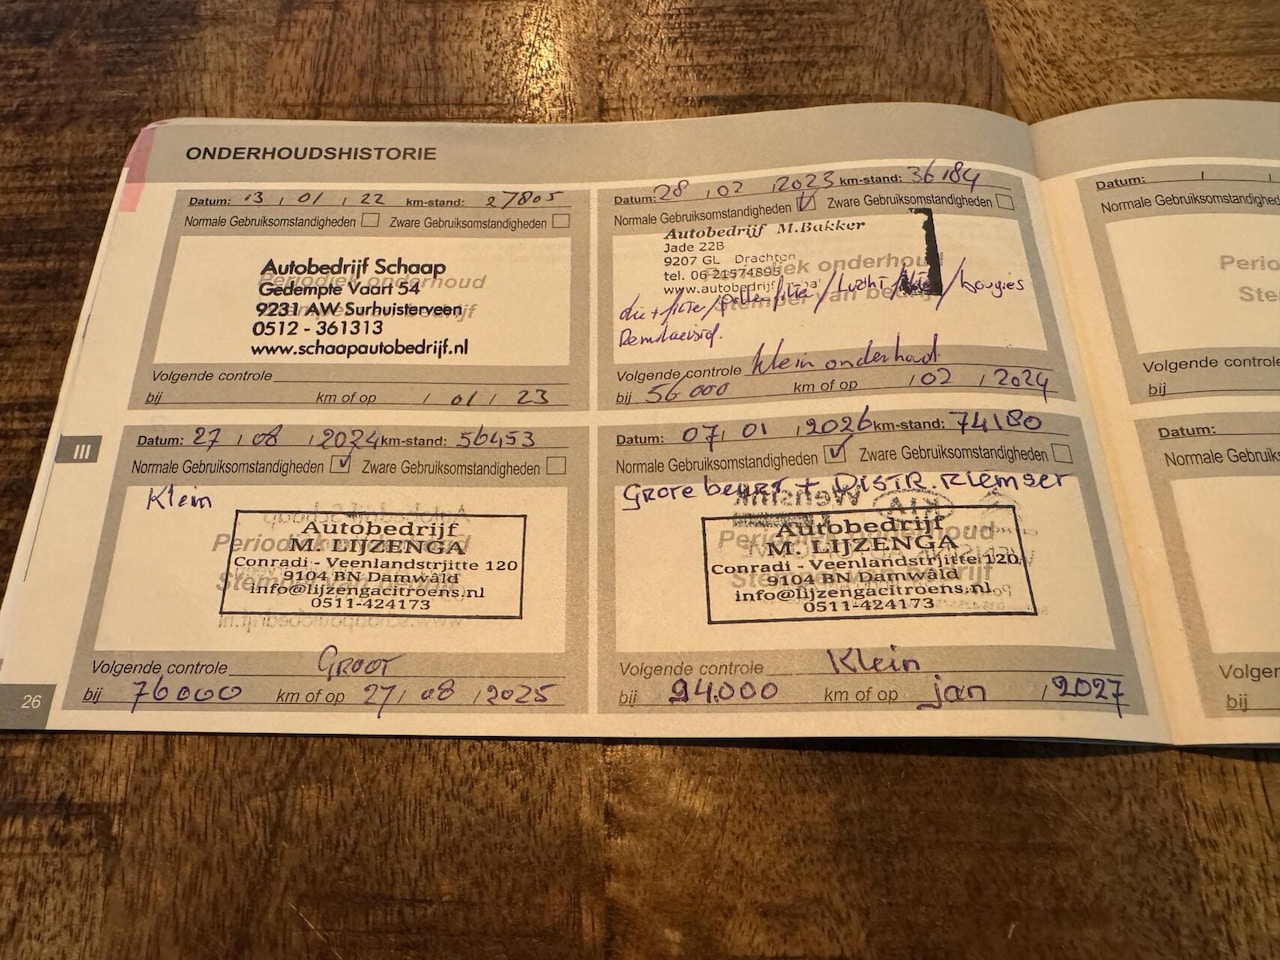 ONDERHOUDSHISTORIE
Datum: 13 / 01 / 22 km-stand: 27805
Normale Gebruiksomstandigheden Zware Gebruiksomstandigheden
Periodiek onderhoud
Stempel van bedrijf
Autobedrijf Schaap
Gedempte Vaart 54
9231 AW Surhuisterveen
0512 - 361313
www.schaapautobedrijf.nl
Volgende controle
bij km of op / 01 / 23
Datum: 28 / 02 / 2023 km-stand: 36184
Normale Gebruiksomstandigheden Zware Gebruiksomstandigheden
Periodiek onderhoud
Stempel van bedrijf
Autobedrijf M.Bakker
Jade 22B
9207 GL Drachten
tel. 06 21574895
www.autobedrijf
/ Lucht / bougies
Volgende controle Klein onderhoud
bij 56000 km of op / 02 / 2024
III
Datum: 27 / 08 / 2024 km-stand: 56453
Normale Gebruiksomstandigheden Zware Gebruiksomstandigheden
Klein
Periodiek onderhoud
Stempel van bedrijf
Autobedrijf
M. LIJZENGA
Conradi - Veenlandstrjitte 120
9104 BN Damwâld
info@lijzengacitroens.nl
0511-424173
Volgende controle Groot
bij 76000 km of op 27 / 08 / 2025
Datum: 07 / 01 / 2026 km-stand: 74180
Normale Gebruiksomstandigheden Zware Gebruiksomstandigheden
Grote beurt + DISTR. Riem set
Periodiek onderhoud
Stempel van bedrijf
Autobedrijf
M. LIJZENGA
Conradi - Veenlandstrjitte 120
9104 BN Damwâld
info@lijzengacitroens.nl
0511-424173
Volgende controle Klein
bij 94.000 km of op jan / 2027
26
Datum: / /
Normale Gebruiksomstandigheden
Volgende controle
bij
Datum:
bij